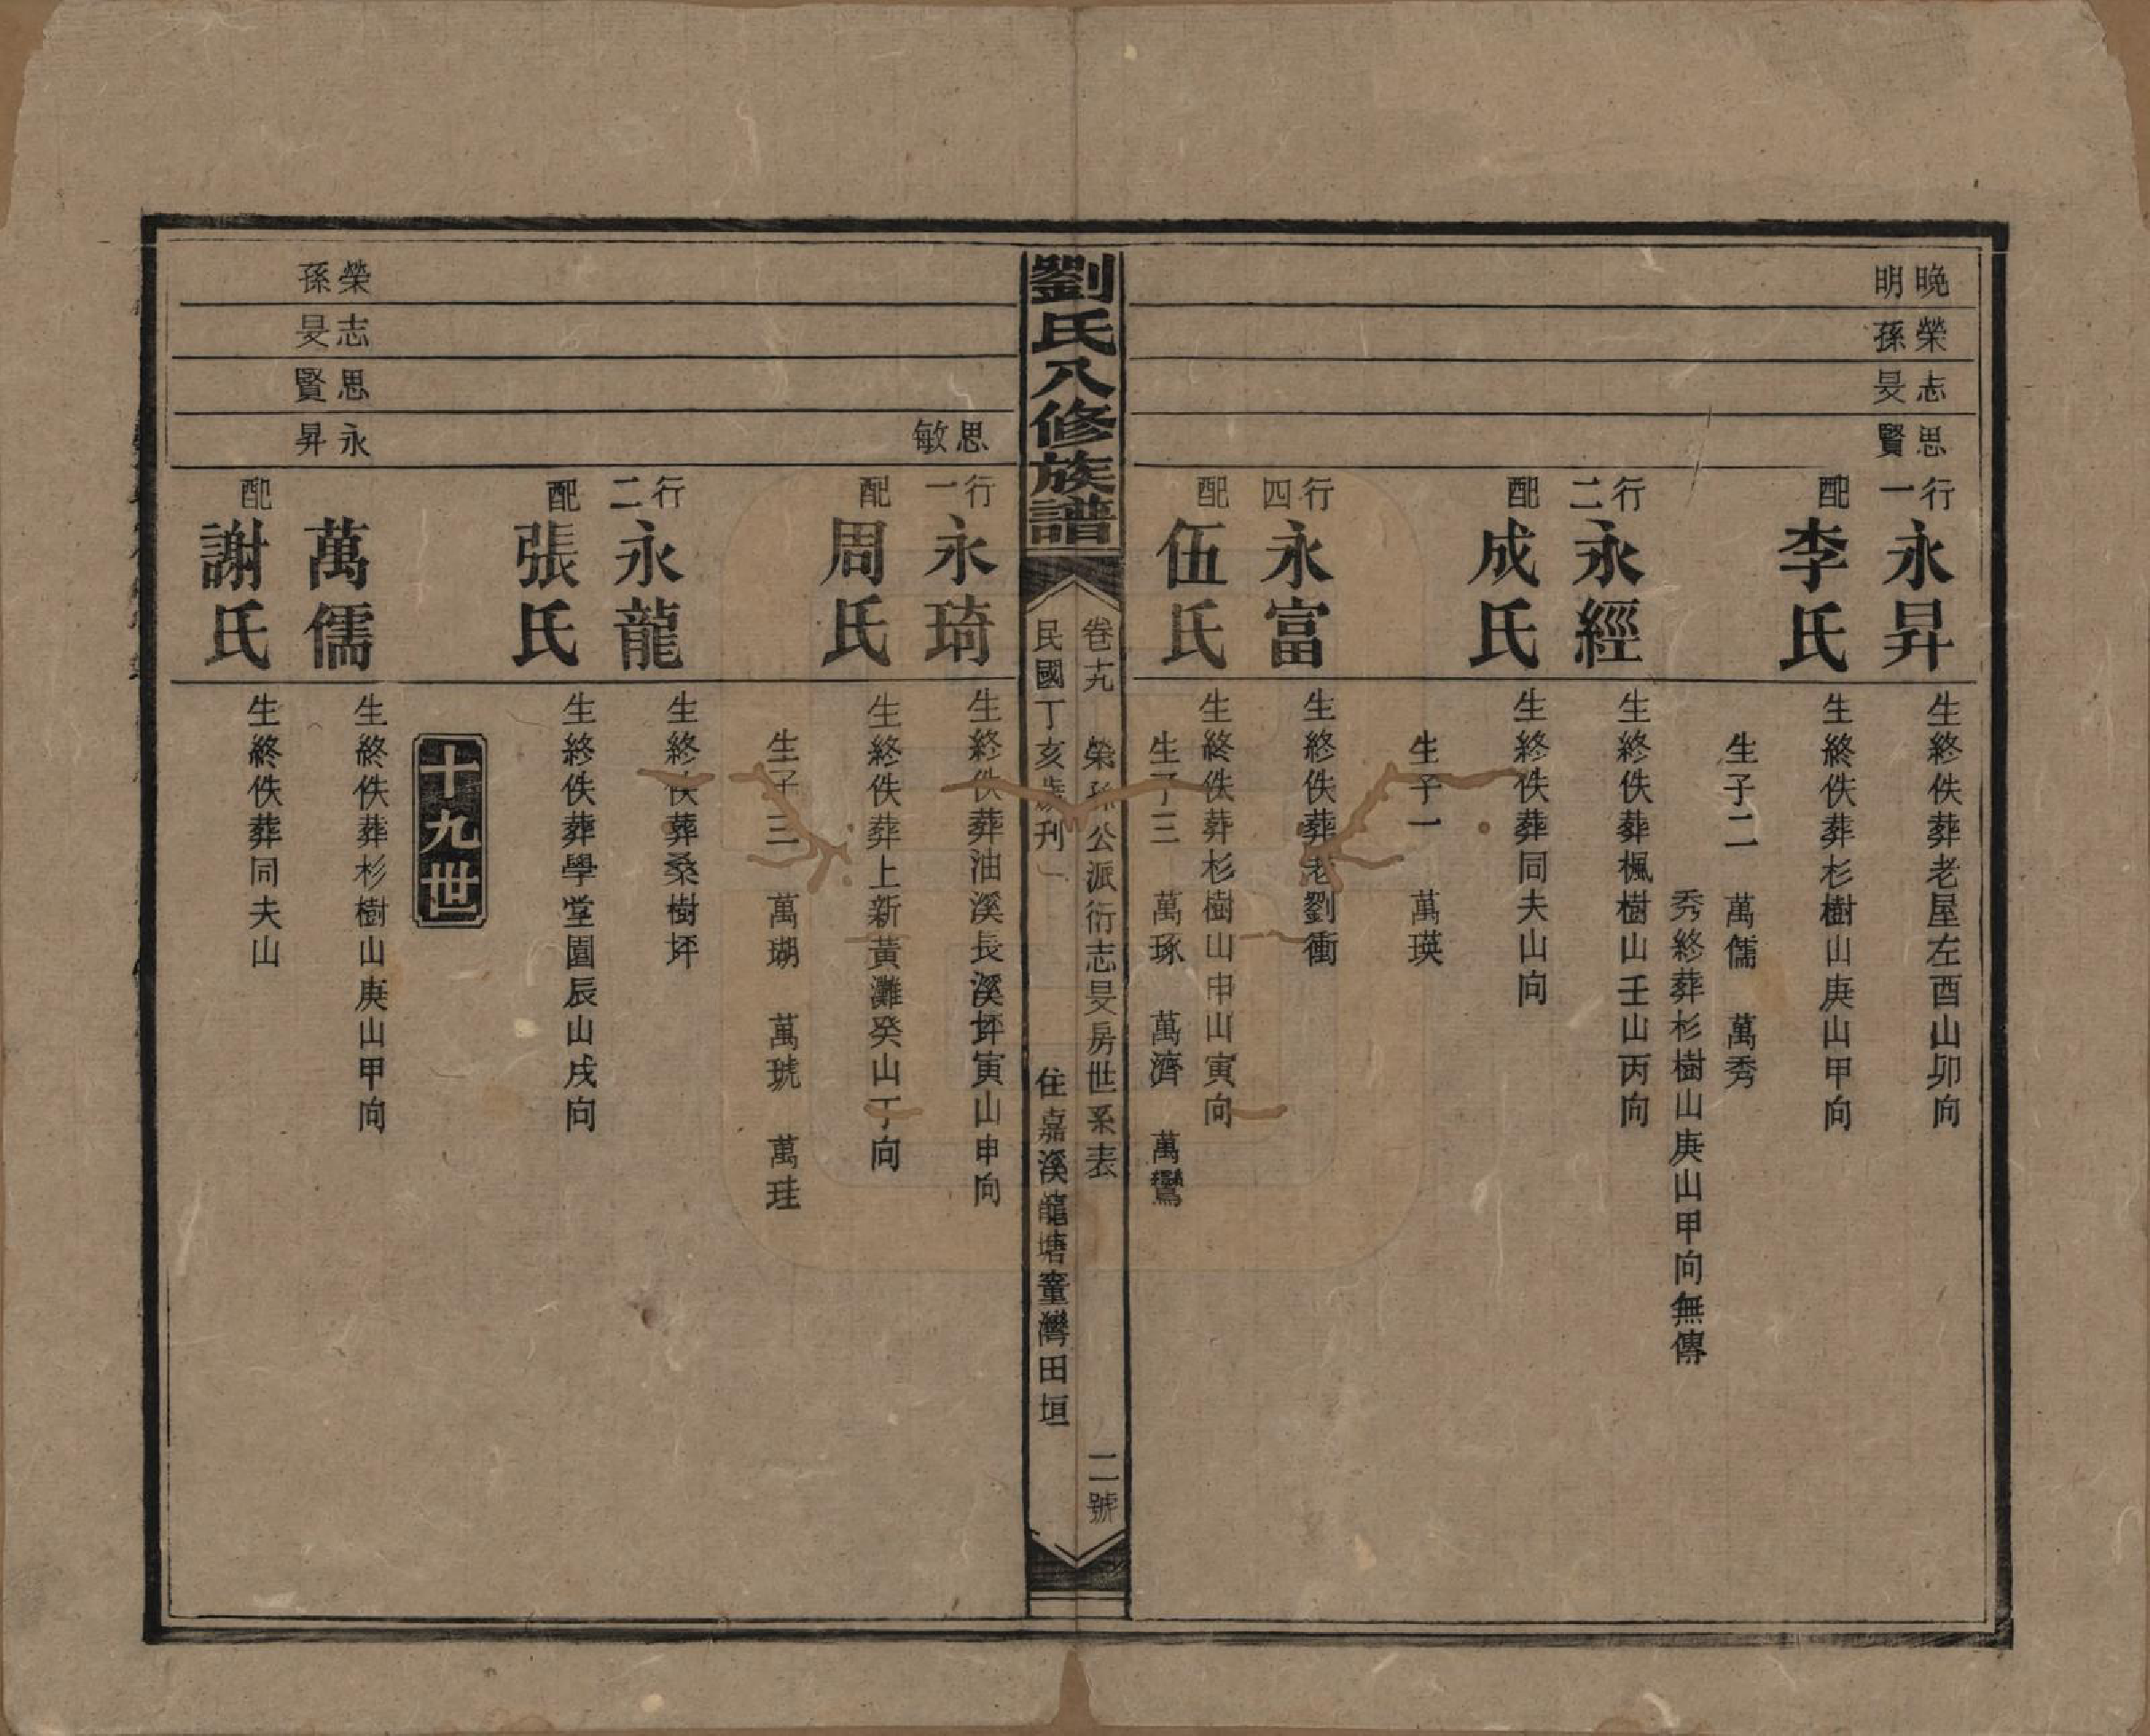 晚明
榮孫
志旻
思賢
行一
永昇
生終佚葬老屋左酉山卯向
配
李氏
生終佚葬杉樹山庚山甲向
生子二 萬儒 萬秀
秀終葬杉樹山庚山甲向無傳
行二
永經
生終佚葬楓樹山壬山丙向
配
成氏
生終佚葬同夫山向
生子一 萬瑛
行四
永富
生終佚葬老劉衝
配
伍氏
生終佚葬杉樹山申山寅向
生子三 萬琢 萬濟 萬鸞
劉氏八修族譜
卷十九 榮孫公派衍志旻房世系表 二號
民國丁亥族刊 住嘉溪龍塘童灣田垣
思敏
行一
永琦
生終佚葬油溪長溪坪寅山申向
配
周氏
生終佚葬上新黃灘癸山丁向
生子三 萬瑚 萬琥 萬珪
行二
永龍
生終佚葬桑樹坪
配
張氏
生終佚葬學堂園辰山戌向
十九世
榮孫
志旻
思賢
永昇
萬儒
生終佚葬杉樹山庚山甲向
配
謝氏
生終佚葬同夫山